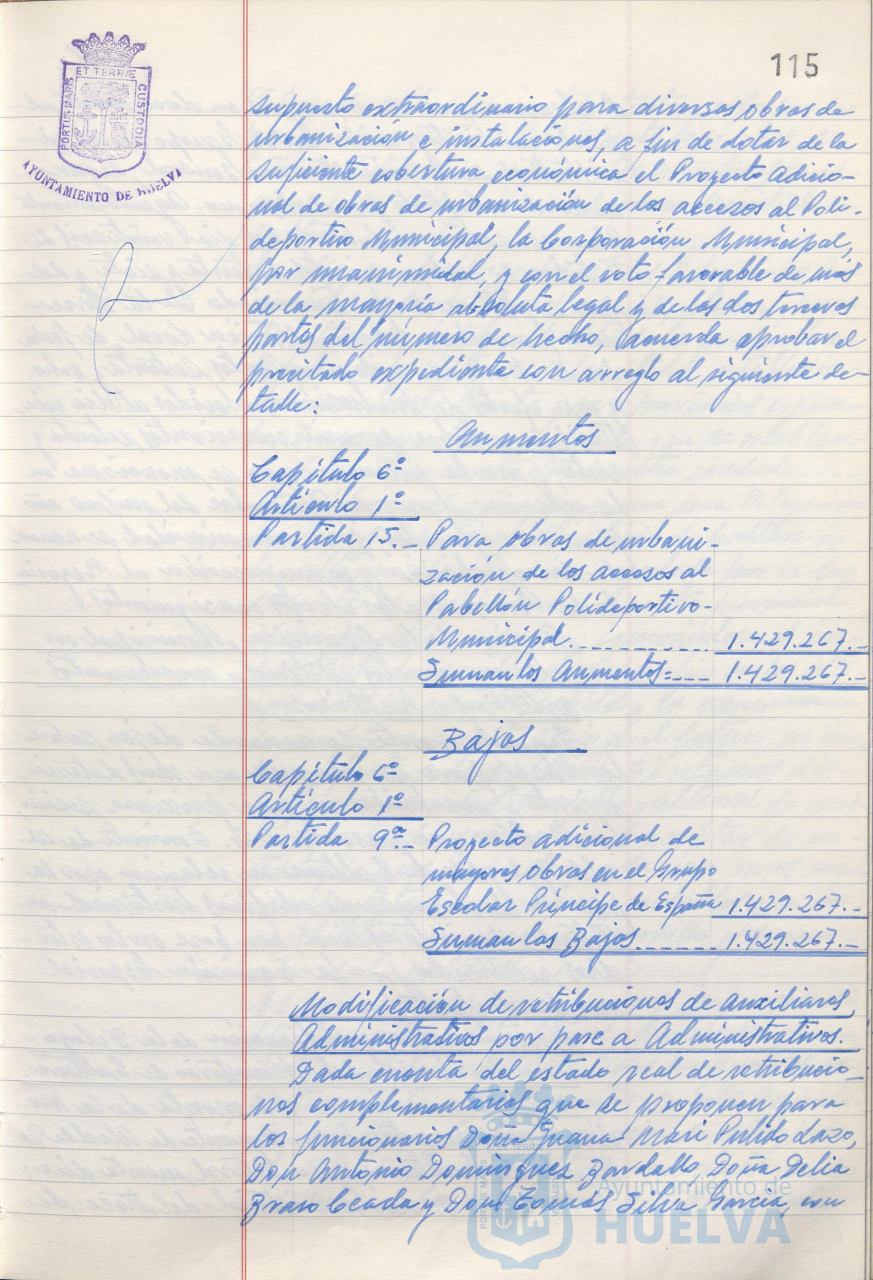 115
ET TERRÆ
PORTUS MARIS
CUSTODIA
AYUNTAMIENTO DE HUELVA
supuesto extraordinario para diversos obras de
urbanización e instalaciones, a fin de dotar de la
suficiente cobertura económica el Proyecto Adicio-
nal de obras de urbanización de los accesos al Poli-
deportivo Municipal, la Corporación Municipal,
por unanimidad, y con el voto favorable de más
de la mayoría absoluta legal y de las dos terceras
partes del número de hecho, acuerda aprobar el
precitado expediente con arreglo al siguiente de-
talle:
Aumentos
Capítulo 6º
Artículo 1º
Partida 15.- Para obras de urbani-
zación de los accesos al
Pabellón Polideportivo-
Municipal.---------- 1.429.267.-
Suman los Aumentos=---- 1.429.267.-
Bajas
Capítulo 6º
Artículo 1º
Partida 9ª.- Proyecto adicional de
mayores obras en el Grupo
Escolar Príncipe de España 1.429.267.-
Suman las Bajas------ 1.429.267.-
Modificación de retribuciones de Auxiliares
Administrativos por pase a Administrativos.
Dada cuenta del estado real de retribucio-
nes complementarias que se proponen para
los funcionarios Doña Juana Mari Pulido Lazo,
Don Antonio Domínguez Zardallo, Doña Delia
Bravo Ceada y Don Tomás Silva García, con
Ayuntamiento de
HUELVA